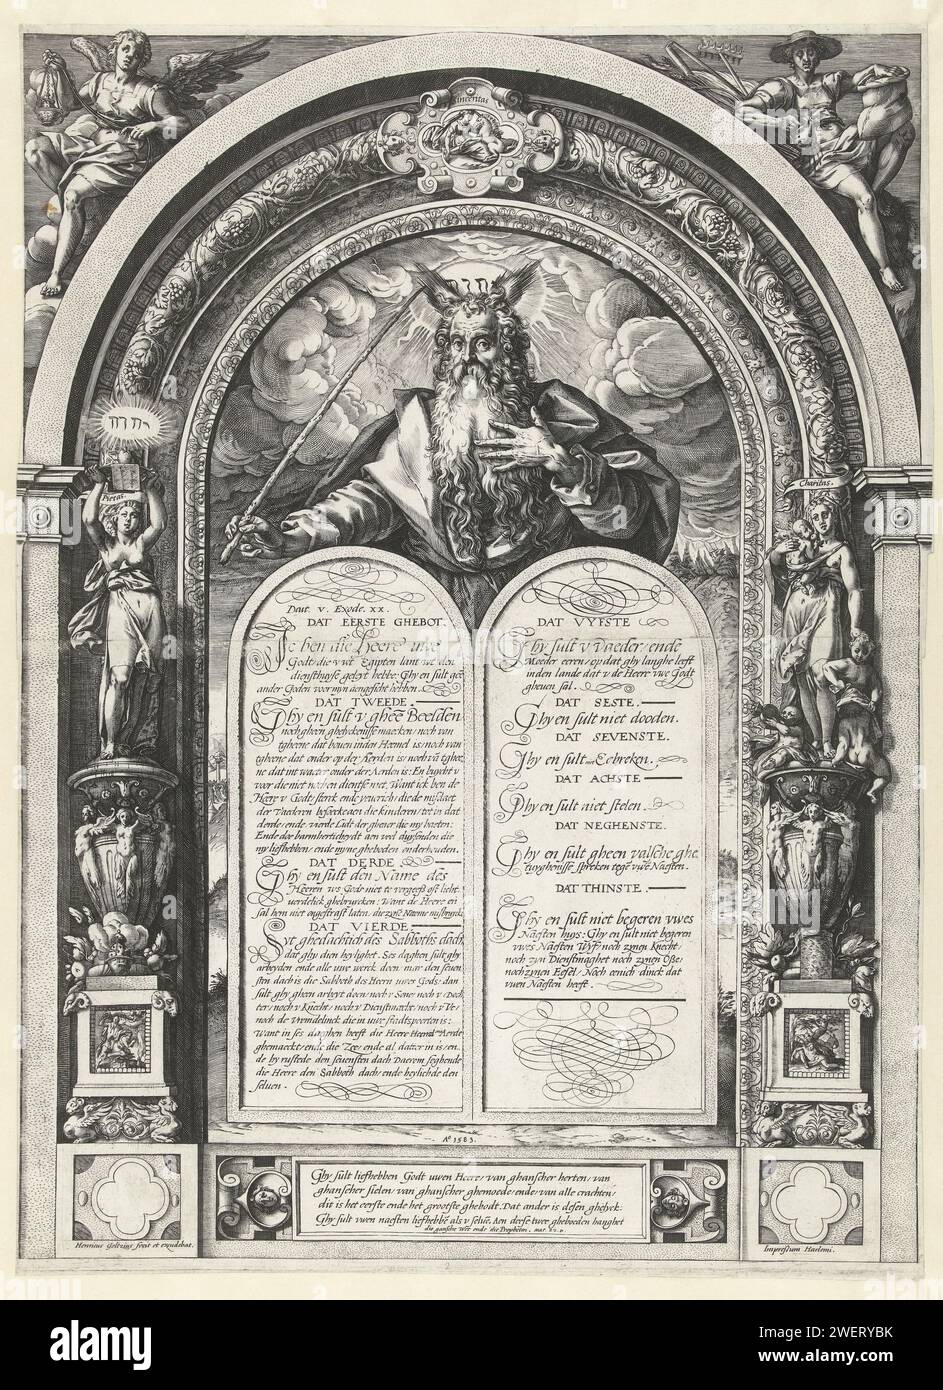 Sinceritas
יהוה
יהוה
Pietas.
Charitas.
Deut. v. Exode. xx.
DAT EERSTE GHEBOT.
Ic ben die Heere uwe
Godt/die v wt Egipten lant wt den
diensthuyse geleyt hebbe. Ghy en sult geē
ander Goden voor myn aengesicht hebben.
DAT TWEEDE.
Ghy en sult v gheē Beelden
noch gheen ghelyckenisse maecken/noch van
tghene dat bouen inden Hemel is/noch van
tghene dat onder op der Aerden is/noch vā tghe
ne dat int water onder der Aerden is: En buycht v
voor die niet noch en dientse niet. Want ick ben de
Heere v Godt/sterck ende yeuerich/die de misdaet
der Vaederen besoecke aen die kinderen/tot in dat
derde/ende vierde Lidt der ghener die my haeten:
Ende doe barmherticheydt aen veel duysenden die
my liefhebben/ende myne gheboden onderhouden.
DAT DERDE
Ghy en sult den Name des
Heeren ws Gods niet te vergeefs oft licht
verdelick ghebruycken: Want de Heere en
sal hem niet ongestraft laten. die zynē Naeme misbruyct.
DAT VIERDE
Syt ghedachtich des Sabboths dach,
dat ghy dien heylighet. Ses daghen sult ghy
arbeyden ende alle uwe werck doen. mar den seuen
sten dach is die Sabboth des Heern uwes Gods: dan
sult ghy gheen arbeyt doen/noch v Sone noch v Doch
ter/noch v Knecht/noch v Dienstmaecht/noch v Ve/
noch de Vremdelinck die in uwe stadtspoorten is:
Want in ses daghen heeft die Heere Hemel en Aerde
ghemaeckt/ende die Zee/ende al datter in is/en
de hy rustede den seuensten dach Daerom seghende
die Heere den Sabboth dach/ende heylichde den
seluen.
DAT VYFSTE
Ghy sult v Vaeder/ende
Moeder eeren/op dat ghy langhe leeft
inden lande dat v de Heere vwe Godt
gheuen sal.
DAT SESTE.
Ghy en sult niet dooden.
DAT SEVENSTE.
Ghy en sult niet Eebreken.
DAT ACHSTE
Ghy en sult niet stelen.
DAT NEGHENSTE.
Ghy en sult gheen valsche ghe
tuyghenisse spreken tegē vwē Naesten.
DAT THINSTE.
Ghy en sult niet begeren vwes
Naesten huys: Ghy en sult niet begeren
vwes Naesten Wyf/noch zynen Knecht/
noch zyn Dienstmaghet noch zynen Osse/
noch zynen Eesel/Noch eenich dinck dat
vwen Naesten heeft.
Aº 1583.
Ghy sult liefhebben Godt uwen Heere/van ghanscher herten/van
ghanscher sielen/van ghanscher ghemoede/ende/van alle crachten/
dit is het eerste ende het grootste ghebodt. Dat ander is desen ghelyck:
Ghy sult vwen naesten liefhebbē als v seluē. Aen dese twee gheboeden hanghet
die gansche Wet ende die Propheten. mat. 22.
Henricus Goltzius fecit et excudebat.
Impressum Harlemi.
alamy
Image ID: 2WERYBK
www.alamy.com